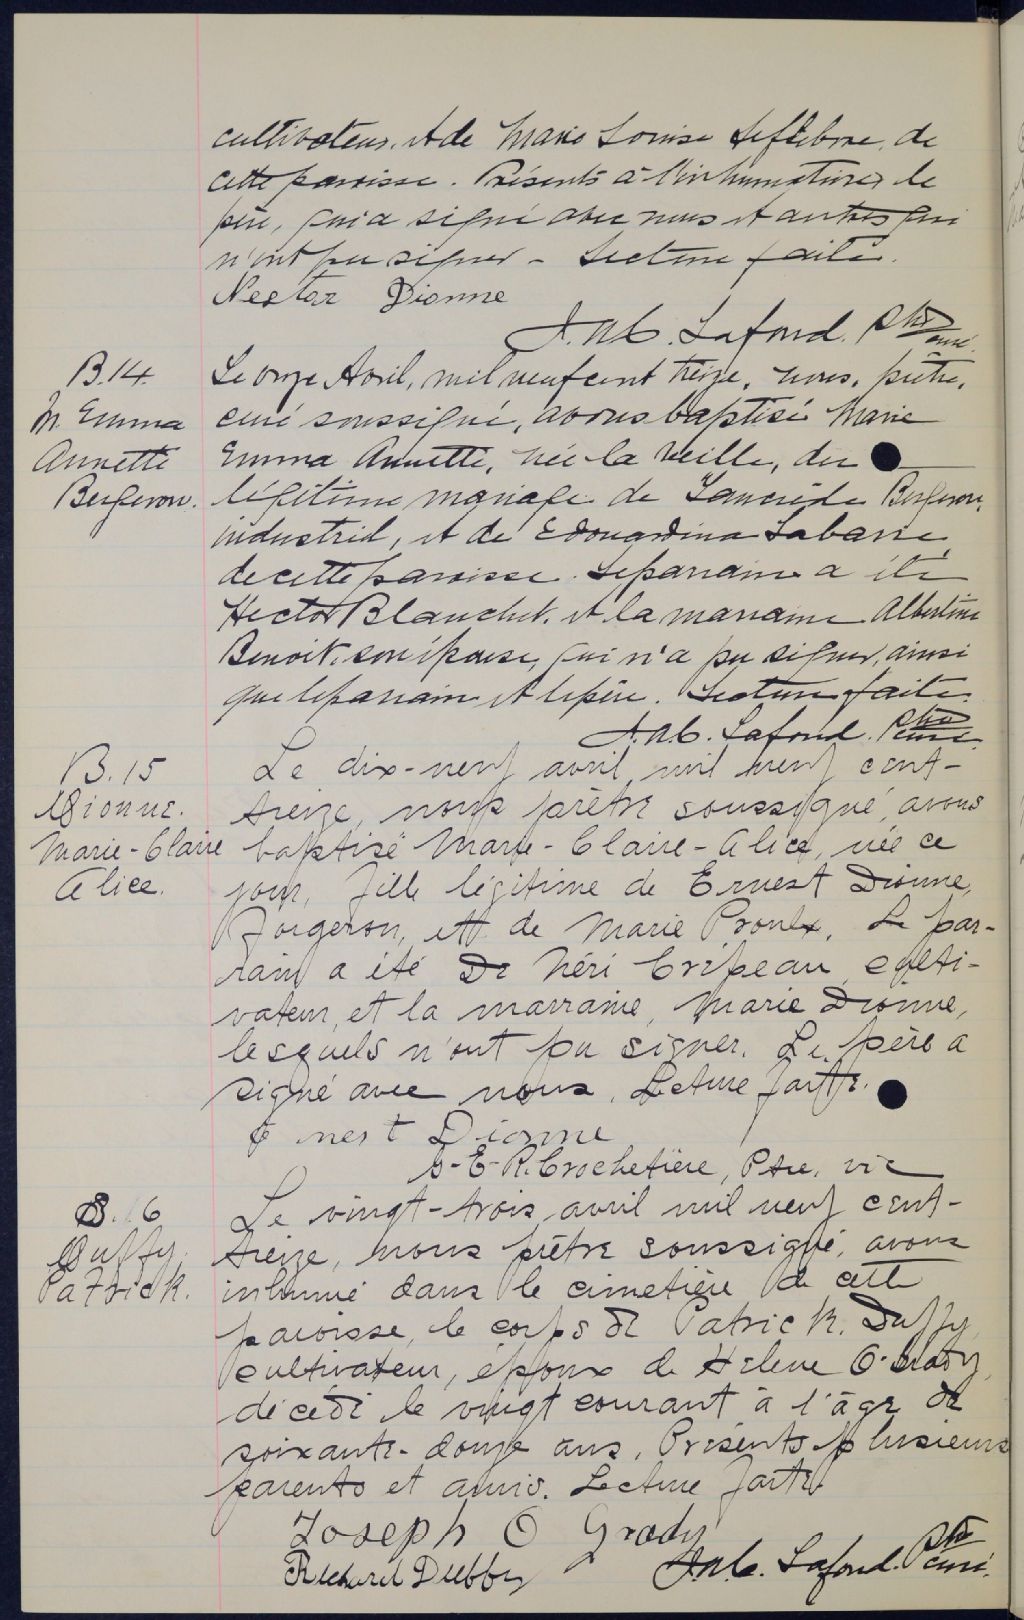 cultivateur, et de Marie Louise Lefebvre, de
cette paroisse. Présents à l'inhumation le
père, qui a signé avec nous et autres qui
n'ont pu signer - Lecture faite.
Nestor Dionne
Lafond. Ptre curé
B.14.
M. Emma
Annette
Bergeron.
Le onze Avril, mil neuf cent treize, nous, prêtre,
curé soussigné, avons baptisé Marie
Emma Annette, née la veille, du
légitime mariage de Tancrède Bergeron,
industriel, et de Edouardina Labarre,
de cette paroisse. Le parrain a été
Hector Blanchet, et la marraine Albertine
Benoit, son épouse, qui n'a pu signer, ainsi
que le parrain et le père. Lecture faite.
Lafond. Ptre curé.
B.15
Dionne.
Marie-Claire
Alice.
Le dix-neuf avril, mil neuf cent-
treize, nous prêtre soussigné, avons
baptisé Marie-Claire-Alice, née ce
jour, fille légitime de Ernest Dionne,
forgeron, et de Marie Proulx. Le par-
rain a été Néri Crépeau, culti-
vateur, et la marraine, Marie Dionne,
lesquels n'ont pu signer. Le père a
signé avec nous. Lecture faite.
Ernest Dionne
E-R. Crochetière, Ptre. vic
S. 16
Duffy.
Patrick.
Le vingt-trois avril mil neuf cent-
treize, nous prêtre soussigné, avons
inhumé dans le cimetière de cette
paroisse, le corps de Patrick. Duffy,
cultivateur, époux de Helene O'Grady,
décédé le vingt courant à l'âge de
soixante-douze ans. Présents plusieurs
parents et amis. Lecture faite
Joseph O Grady
Richard Duffy
Lafond. Ptre curé.